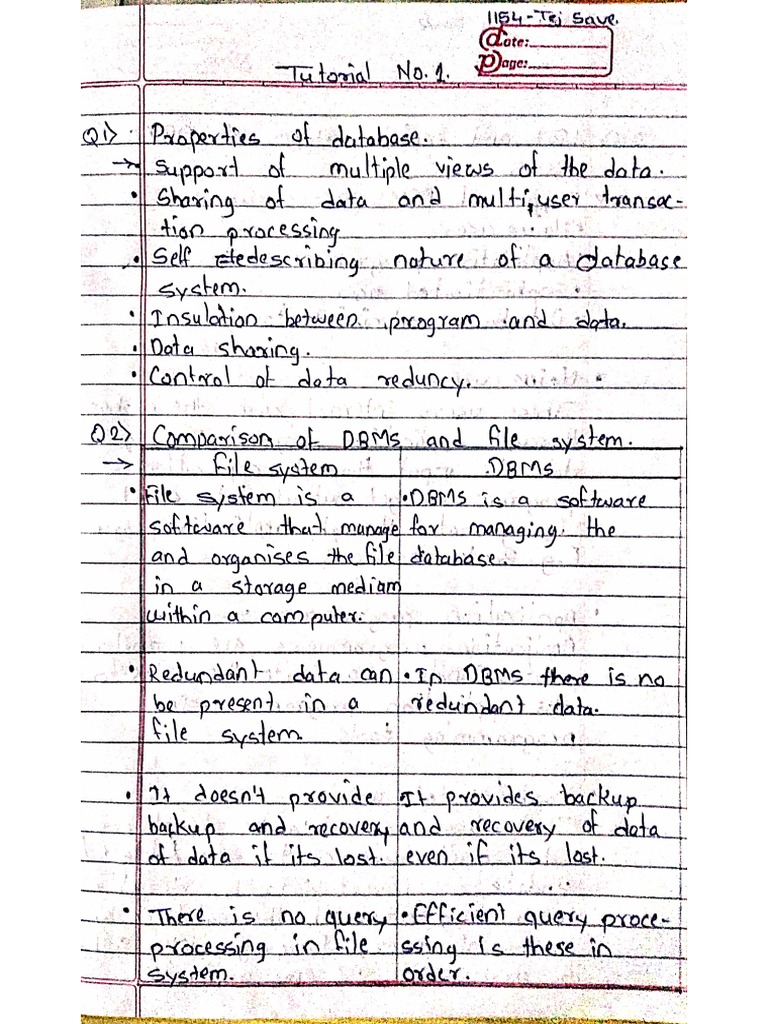 1154-Tej Save.
Date:
Page:
Tutorial No. 1.
Q1) Properties of database.
→ Support of multiple views of the data.
• Sharing of data and multi, user transac-
tion processing
• Self describing nature of a database
system.
• Insulation between program and data.
• Data sharing.
• Control of data reduncy.
Q2) Comparison of DBMS and file system.
→ File system DBMS
• File system is a • DBMS is a software
software that manage for managing the
and organises the file database.
in a storage mediam
within a computer.
• Redundant data can • In DBMS there is no
be present in a redundant data.
file system.
• It doesn't provide It provides backup
backup and recovery and recovery of data
of data if its lost. even if its lost.
• There is no query • Efficient query proce-
processing in file ssing is these in
system. order.